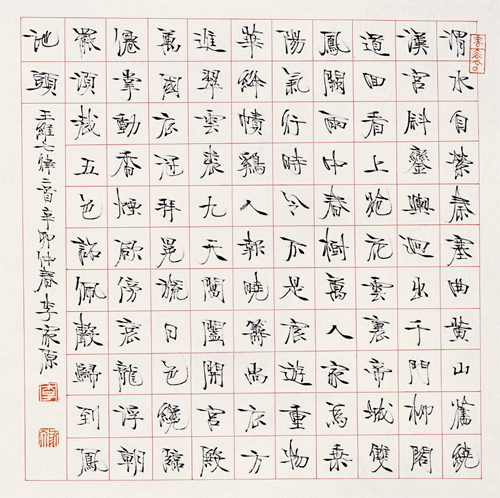 渭水自縈秦塞曲黄山舊繞
漢宮斜鑾輿迥出千門柳閣
道回看上苑花雲裏帝城雙
鳳闕雨中春樹萬人家爲乘
陽氣行時令不是宸遊重物
華絳幘雞人報曉籌尚衣方
進翠雲裘九天閶闔開宮殿
萬國衣冠拜冕旒日色纔臨
僊掌動香煙欲傍衮龍浮朝
罷須裁五色詔佩聲歸到鳳
池頭
王維七律二首辛卯仲春李家原